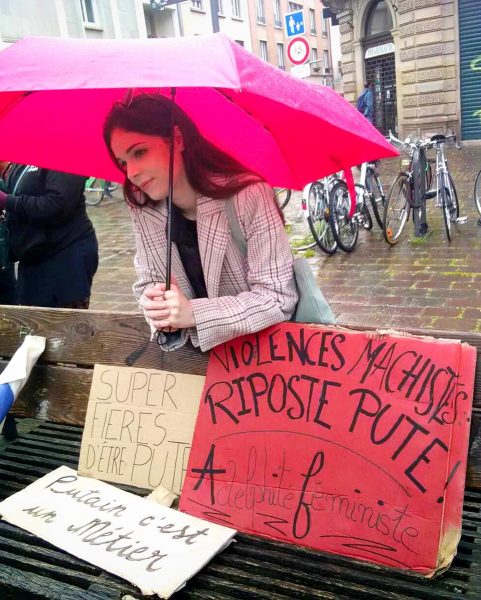 VIOLENCES MACHISTES
RIPOSTE PUTE !
Adelphité féministe
SUPER
FIERES
D'ÊTRE PUTE
Putain c'est
un Métier